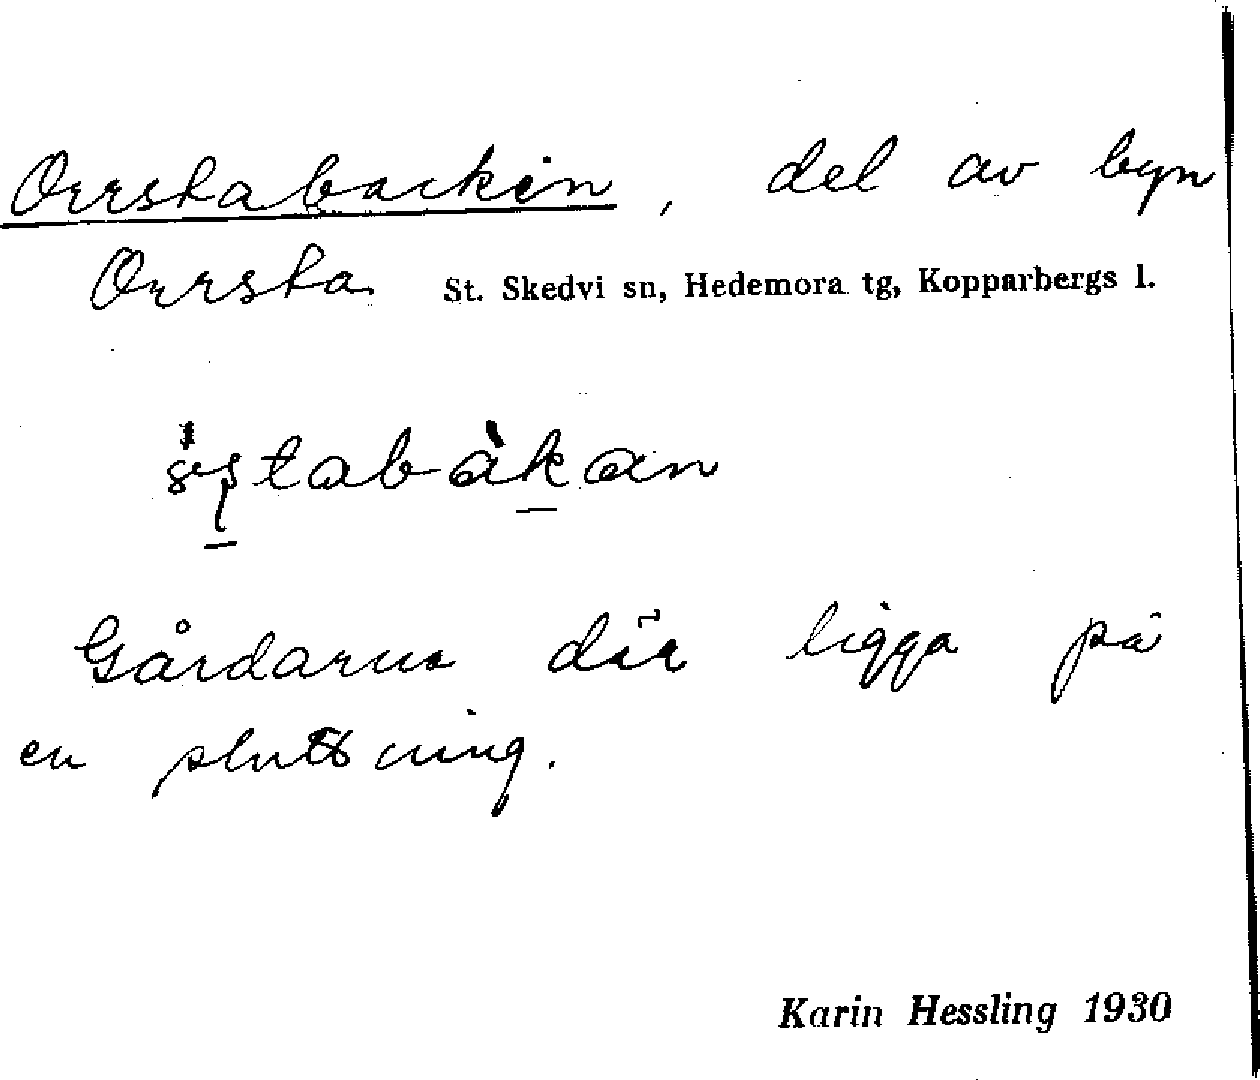 Orrstabacken, del av byn
Orrsta St. Skedvi sn, Hedemora tg, Kopparbergs l.
Gårdarna där ligga på
en sluttning.
Karin Hessling 1930